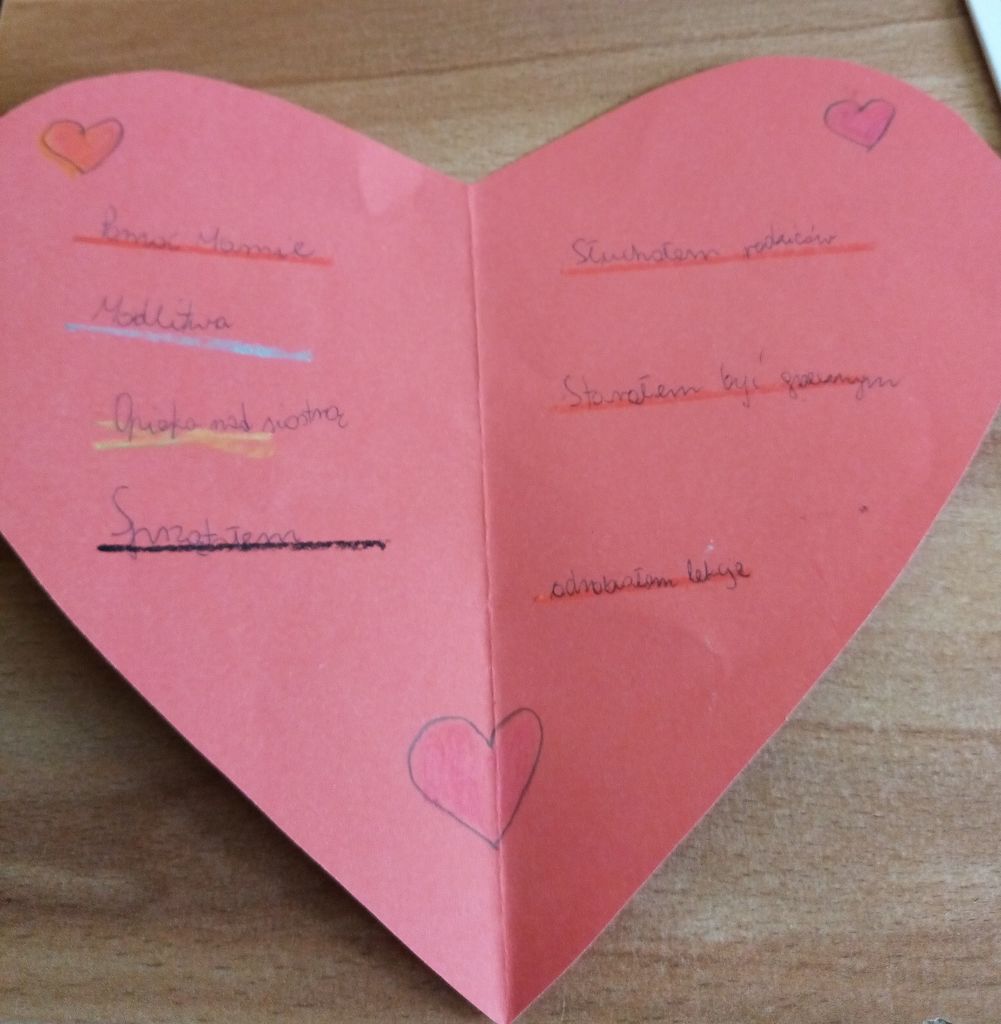 Pomoc Mamie
Modlitwa
Opieka nad siostrą
Sprzątałem
Słuchałem rodziców
Starałem być grzecznym
odrobiałem lekcje